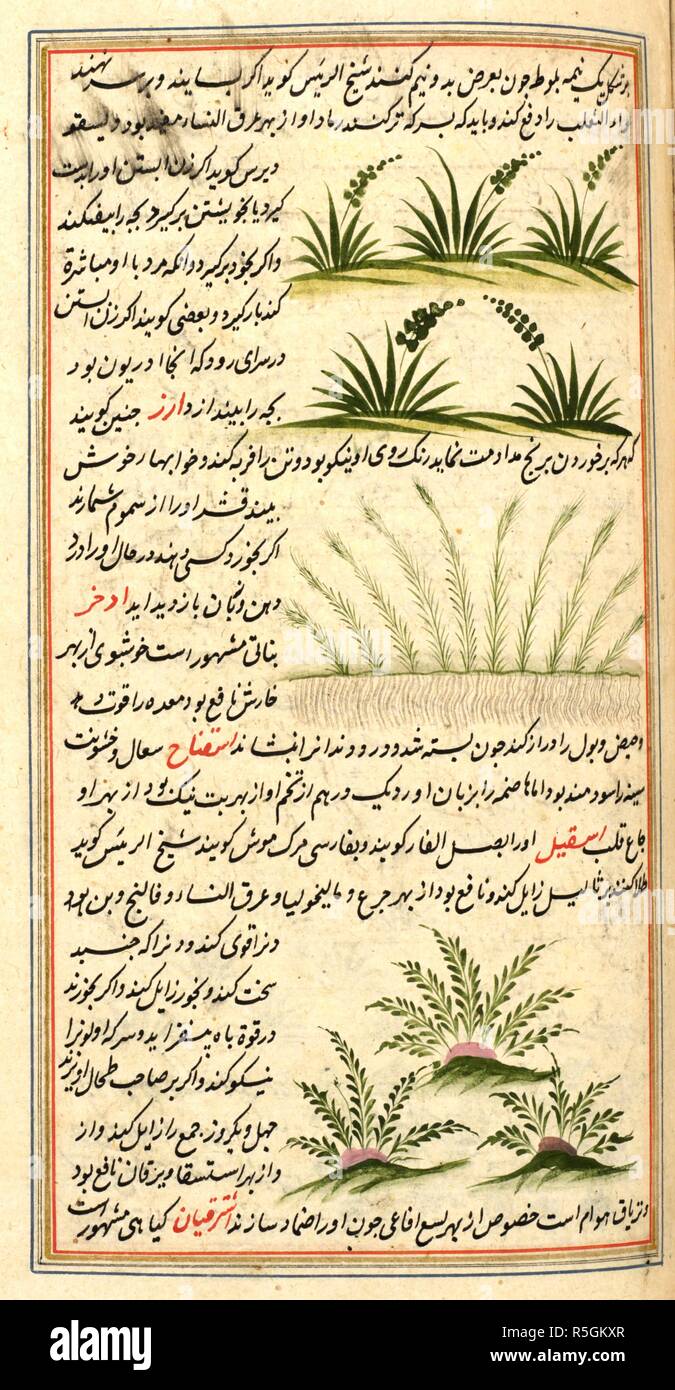 بر شکل یک نیمه بلوط چون بعرض بدو نیم کنند شیخ الرئیس کوید اکر بسایند و بر سر نهند
داء الثعلب را دفع کند و باید که بسرکه تر کنند رماد او از بهر عرق النساء مفید بود و لیسقو
دیرس کوید اکر زن ابستن اورا بدست
کیرد یا بخویشتن برکیرد بچه را بیفکند
واکر بخود برکیرد وانکه مرد با او مباشرة
کند بار کیرد و بعضی کویند اکر زن ابستن
در سرای رود که انجا ادریون بود
بچه را بیندازد ارز جنین کویند
کهر که بر خوردن برنج مداومت نماید رنک روی او نیکو بود و تن را فربه کند و خوابهاء خوش
بیند قشر اورا از سموم شمارند
اکر بخورد کسی دهند در حال اورا درد
دهن و زبان بازدید اید ادخر
نباتی مشهور است خوشبوی از بهر
خارش نافع بود معده را قوت دهد
وحیض و بول را دراز کند چون بسته شود و دندانرا بنشاند اسفناح سعال و خشونت
سینه را سودمند بود اما هاضمه را بزیان اورد یک درهم از تخم او از بهر تب نیک بود از بهر او
جاع قلب اسقیل اورا بصل الفار کویند و بفارسی مرک موش کویند شیخ الرئیس کوید
طلا کنند بر ثالیل زایل کند و نافع بود از بهر صرع و مالیخولیا و عرق النساء و فالنج و بن
دندانرا قوی کند و دندانرا که جنبد
سخت کند و بخور زایل کند واکر بخورند
در قوة باه بیفزاید و سرکه او لونرا
نیکو کند واکر بر صاحب طحال اویزند
چهل و یکروز جمع را زایل کیند و از
و از بهر استسقا و یرقان نافع بود
و تریاق هوام است خصوص از بهر لسع افاعی چون اورا ضماد سازند اشترقیان کیاهی مشهور است
alamy
Image ID: R5GKXR
www.alamy.com